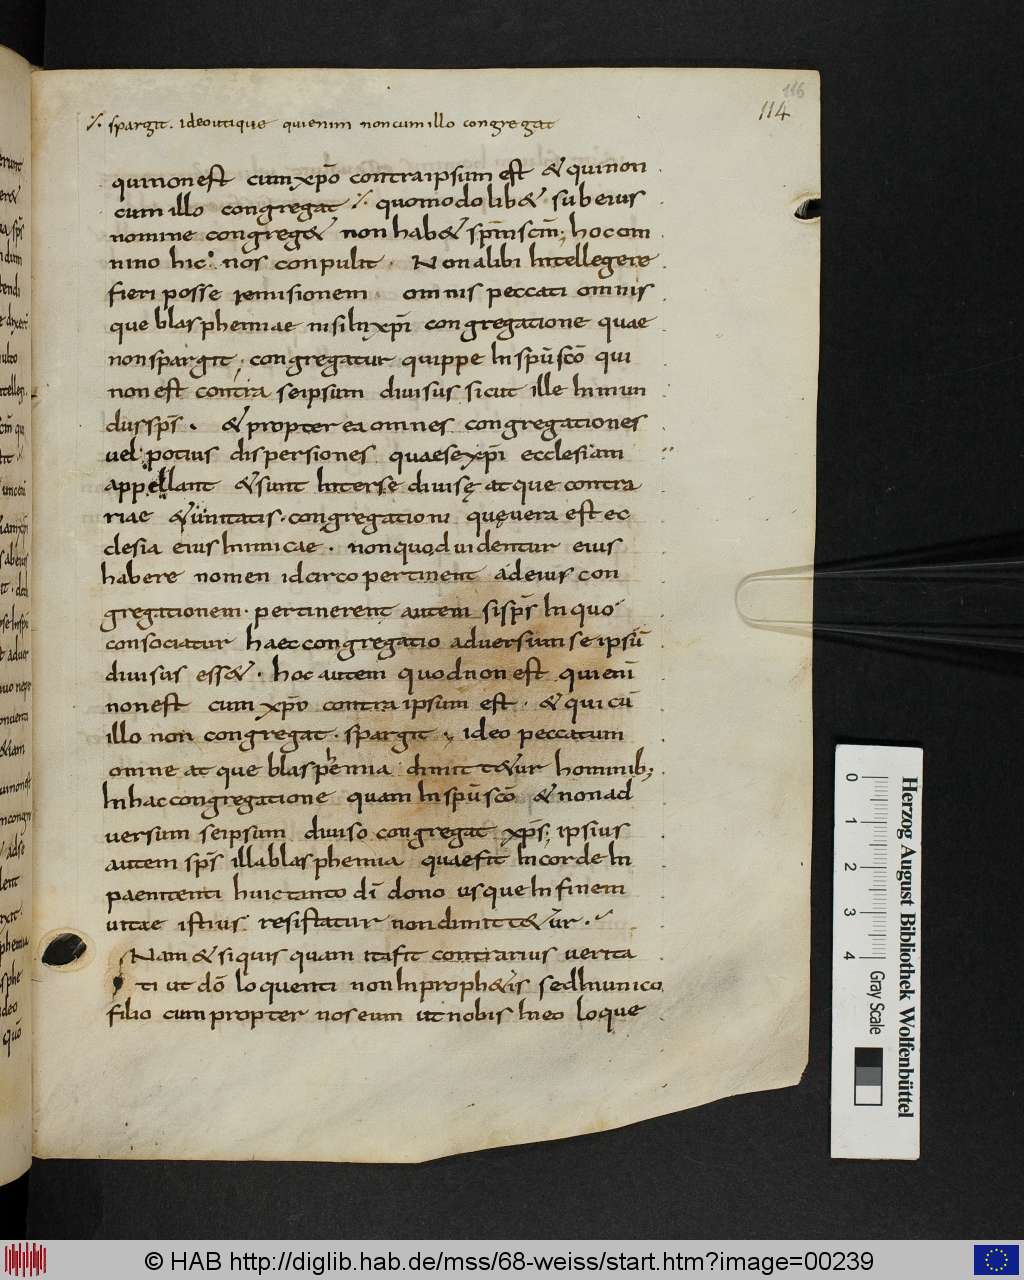 116
114
⁒ spargit. ideo utique qui enim non cum illo congregat
qui non est cum xp̄o contra ipsum est & qui non
cum illo congregat ⁒ quomodo lib& sub eius
nomine congreg& non hab& sp̄m sc̄m; hoc om
nino hic nos conpulit. Non alibi intellegere
fieri posse remisionem omnis peccati omnis
que blasphemiae nisi in xp̄i congregatione quae
non spargit; congregatur quippe in sp̄u sc̄o qui
non est contra seipsum divisus sicut ille inmun
dus sp̄s. & propter ea omnes congregationes
vel potius dispersiones quae se xp̄i ecclesiam
appellant & sunt inter se divisę atque contra
riae & unitatis congregationi quę vera est ec
clesia eius inimicae. non quod videntur eius
habere nomen idcirco pertinent ad eius con
gregationem. pertinerent autem si sp̄s in quo
consociatur haec congregatio adversum se ipsū
divisus ess&. hoc autem quod non est qui eni
non est cum xp̄o contra ipsum est. & qui cū
illo non congregat. spargit; ideo peccatum
omne atque blasphemia dimitt&ur hominib;
in hac congregatione quam in sp̄u sc̄o & non ad
versum seipsum diviso congregat xp̄s; ipsius
autem sp̄s illa blasphemia quae fit in corde in
paenitenti huic tanto dī dono usque in finem
vitae istius resistatur non dimitt&ur.
Nam & si quis quam ita fit contrarius verita
ti ut dō loquenti non in proph&is sed in unico
filio cum propter nos eum ut nobis in eo loque
0 1 2 3 4
Gray Scale
Herzog August Bibliothek Wolfenbüttel
© HAB http://diglib.hab.de/mss/68-weiss/start.htm?image=00239